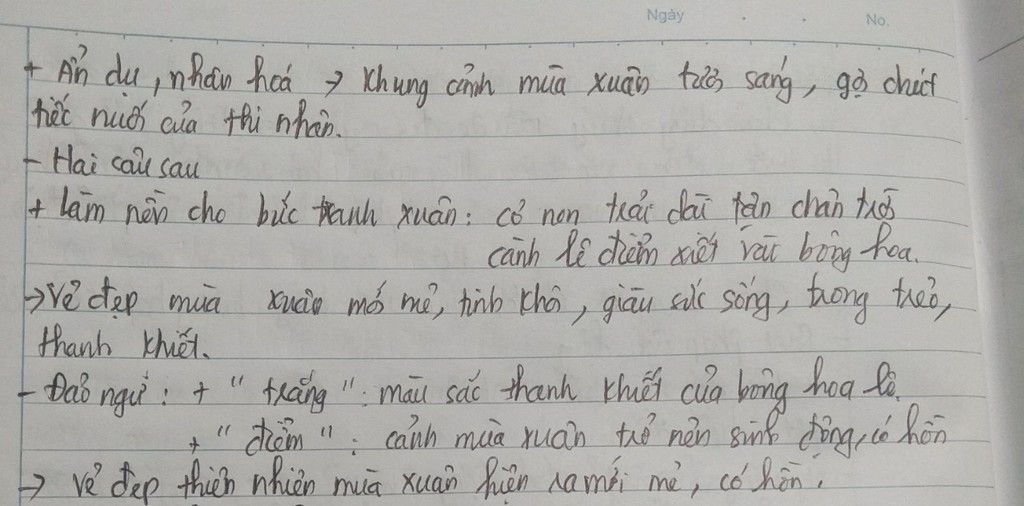 Ngày No.
+ Ẩn dụ, nhân hoá → Khung cảnh mùa xuân tươi sáng, gợi chút
tiếc nuối của thi nhân.
- Hai câu sau
+ Làm nền cho bức tranh xuân: cỏ non trải dài tận chân trời
cành lê điểm xiết vài bông hoa.
→ Vẻ đẹp mùa xuân mới mẻ, tinh khôi, giàu sức sống, trong trẻo,
thanh khiết.
- Đảo ngữ: + "trắng": màu sắc thanh khiết của bông hoa lê.
+ "điểm": cảnh mùa xuân trở nên sinh động, có hồn
→ Vẻ đẹp thiên nhiên mùa xuân hiện ra mới mẻ, có hồn.